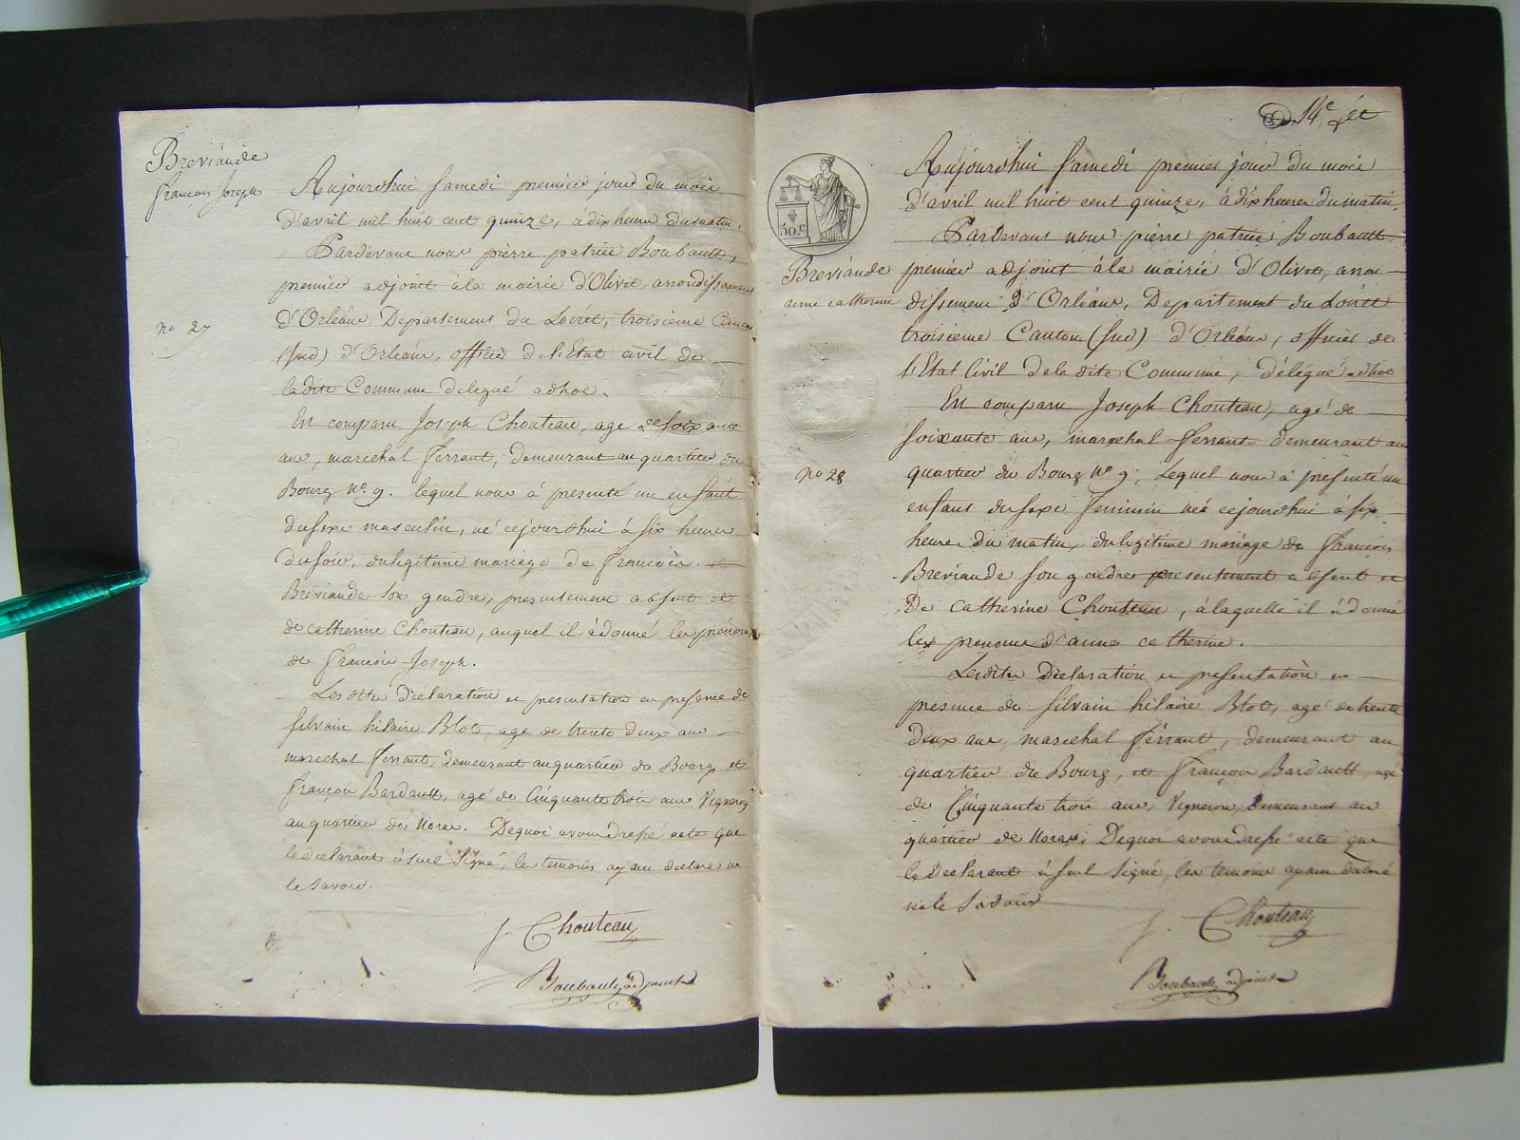 Breviande
françois Joseph
no 27
Aujourdhui samedi premier jour du mois
d'avril mil huit cent quinze, à dix heures du matin.
Pardevant nous pierre patrice Boubault,
premier adjoint à la mairie d'Olivet, arrondissement
d'Orléans, Departement du Loiret, troisieme Canton
(sud) d'Orléans, officier de l'Etat civil de
la dite Commune délegué adhoc.
En comparu Joseph Chouteau, agé de soixante
ans, marechal ferrant, demeurant au quartier du
Bourg no. 9. lequel nous à presenté un enfant
du sexe masculin, né cejourdhui à six heures
du soir, du légitime mariage de françois
Breviande son gendre, presentement absent et
de catherine Chouteau, auquel il à donné les prénoms
de françois Joseph.
Lesdites déclaration et presentation en presence de
silvain hilaire Blot, agé de trente deux ans
marechal ferrant, demeurant au quartier du Bourg et
françois Bardault, agé de Cinquante trois ans Vigneron
au quartier de Noras. Dequoi avons dressé acte que
le déclarant à seul signé, les temoins ayant declaré ne
le savoir.
J. Chouteau
Boubault, adjoint
14e
50 c
Breviande
anne catherine
no 28
Aujourdhui samedi premier jour du mois
d'avril mil huit cent quinze, à dix heures du matin.
Pardevant nous pierre patrice Boubault
premier adjoint à la mairie d'Olivet, arron
dissement d'Orléans, Departement du Loiret
troisieme Canton (sud) d'Orléans, officier de
l'Etat Civil de la dite Commune, délégué adhoc
En comparu Joseph Chouteau, agé de
soixante ans, maréchal ferrant demeurant au
quartier du Bourg no 9; Lequel nous à présenté un
enfant du sexe féminin née cejourdhui à six
heures du matin, du légitime mariage de françois
Breviande son gendre presentement absent et
de catherine Chouteau, à laquelle il à donné
les prenoms d'anne catherine.
Lesdites déclaration et présentation en
presence de silvain hilaire Blot, agé de trente
deux ans, marechal ferrant, demeurant au
quartier du Bourg, et françois Bardault, agé
de Cinquante trois ans, Vigneron, demeurant au
quartier de Noras; Dequoi avons dressé acte que
le Déclarant à seul signé, les temoins ayant déclaré
ne le savoir
J. Chouteau
Boubault, adjoint